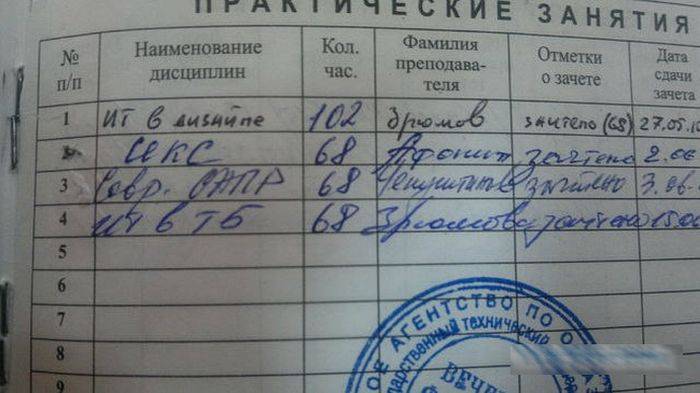 ПРАКТИЧЕСКИЕ ЗАНЯТИЯ
№ п/п Наименование дисциплин Кол. час. Фамилия преподава-теля Отметки о зачете Дата сдачи зачета
1 ИТ в дизайне 102 Зрюмов зачтено (68) 27.05.
СИКС 68 Афонин зачтено 2.06
3 Совр. САПР 68 зачтено 3.06.
4 ИТ в ТБ 68 Зрюмова зачтено 15.06
5
6
7
8
9
АГЕНТСТВО ПО О
ТЕХНИЧЕСКИЙ
ВЕЧЕ